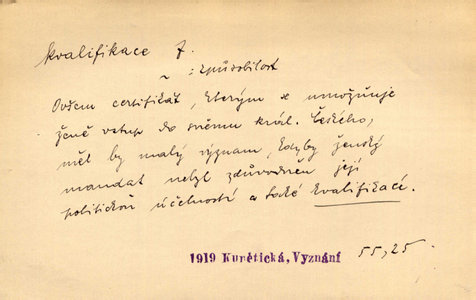 kvalifikace f.
~ : způsobilost
Ovšem certifikát, kterým se umožňuje
ženě vstup do sněmu král. Českého,
měl by malý význam, kdyby ženský
mandat nebyl zdůvodněn její
politickou účelností a také kvalifikací.
1919 Kunětická, Vyznání 55,25.